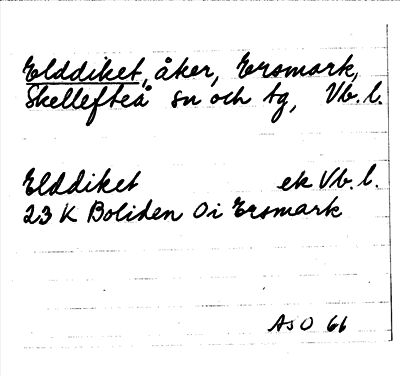 Elddiket, åker, Ersmark,
Skellefteå sn och tg, Vb. l.
Elddiket ek Vb. l.
23 K Boliden 0i Ersmark
AJO 66